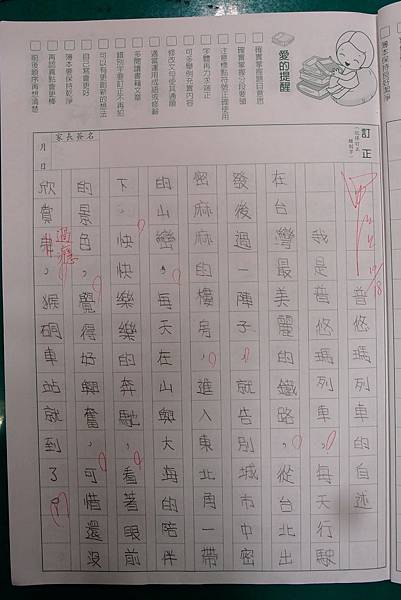 愛的提醒
確實掌握題目意思
確實掌握分段要領
注意標點符號正確使用
字體再力求端正
可多舉例充實內容
修改文句使其通順
適當運用成語或修辭
多閱讀書籍文章
錯別字要訂正不再犯
可以有更創新的想法
自己寫會更好
簿本要保持乾淨
再認真點會更棒
前後順序再想清楚
訂正
家長簽名
月 日
普悠瑪列車的自述
我是普悠瑪列車,每天行駛
在台灣最美麗的鐵路,從台北出
發後過一陣子,就告別城市中密
密麻麻的樓房,進入東北角一帶
的山巒,每天在山與大海的陪伴
下,快快樂樂的奔馳,看著眼前
的景色,覺得好興奮,可惜還沒
過癮
欣賞,猴硐車站就到了。